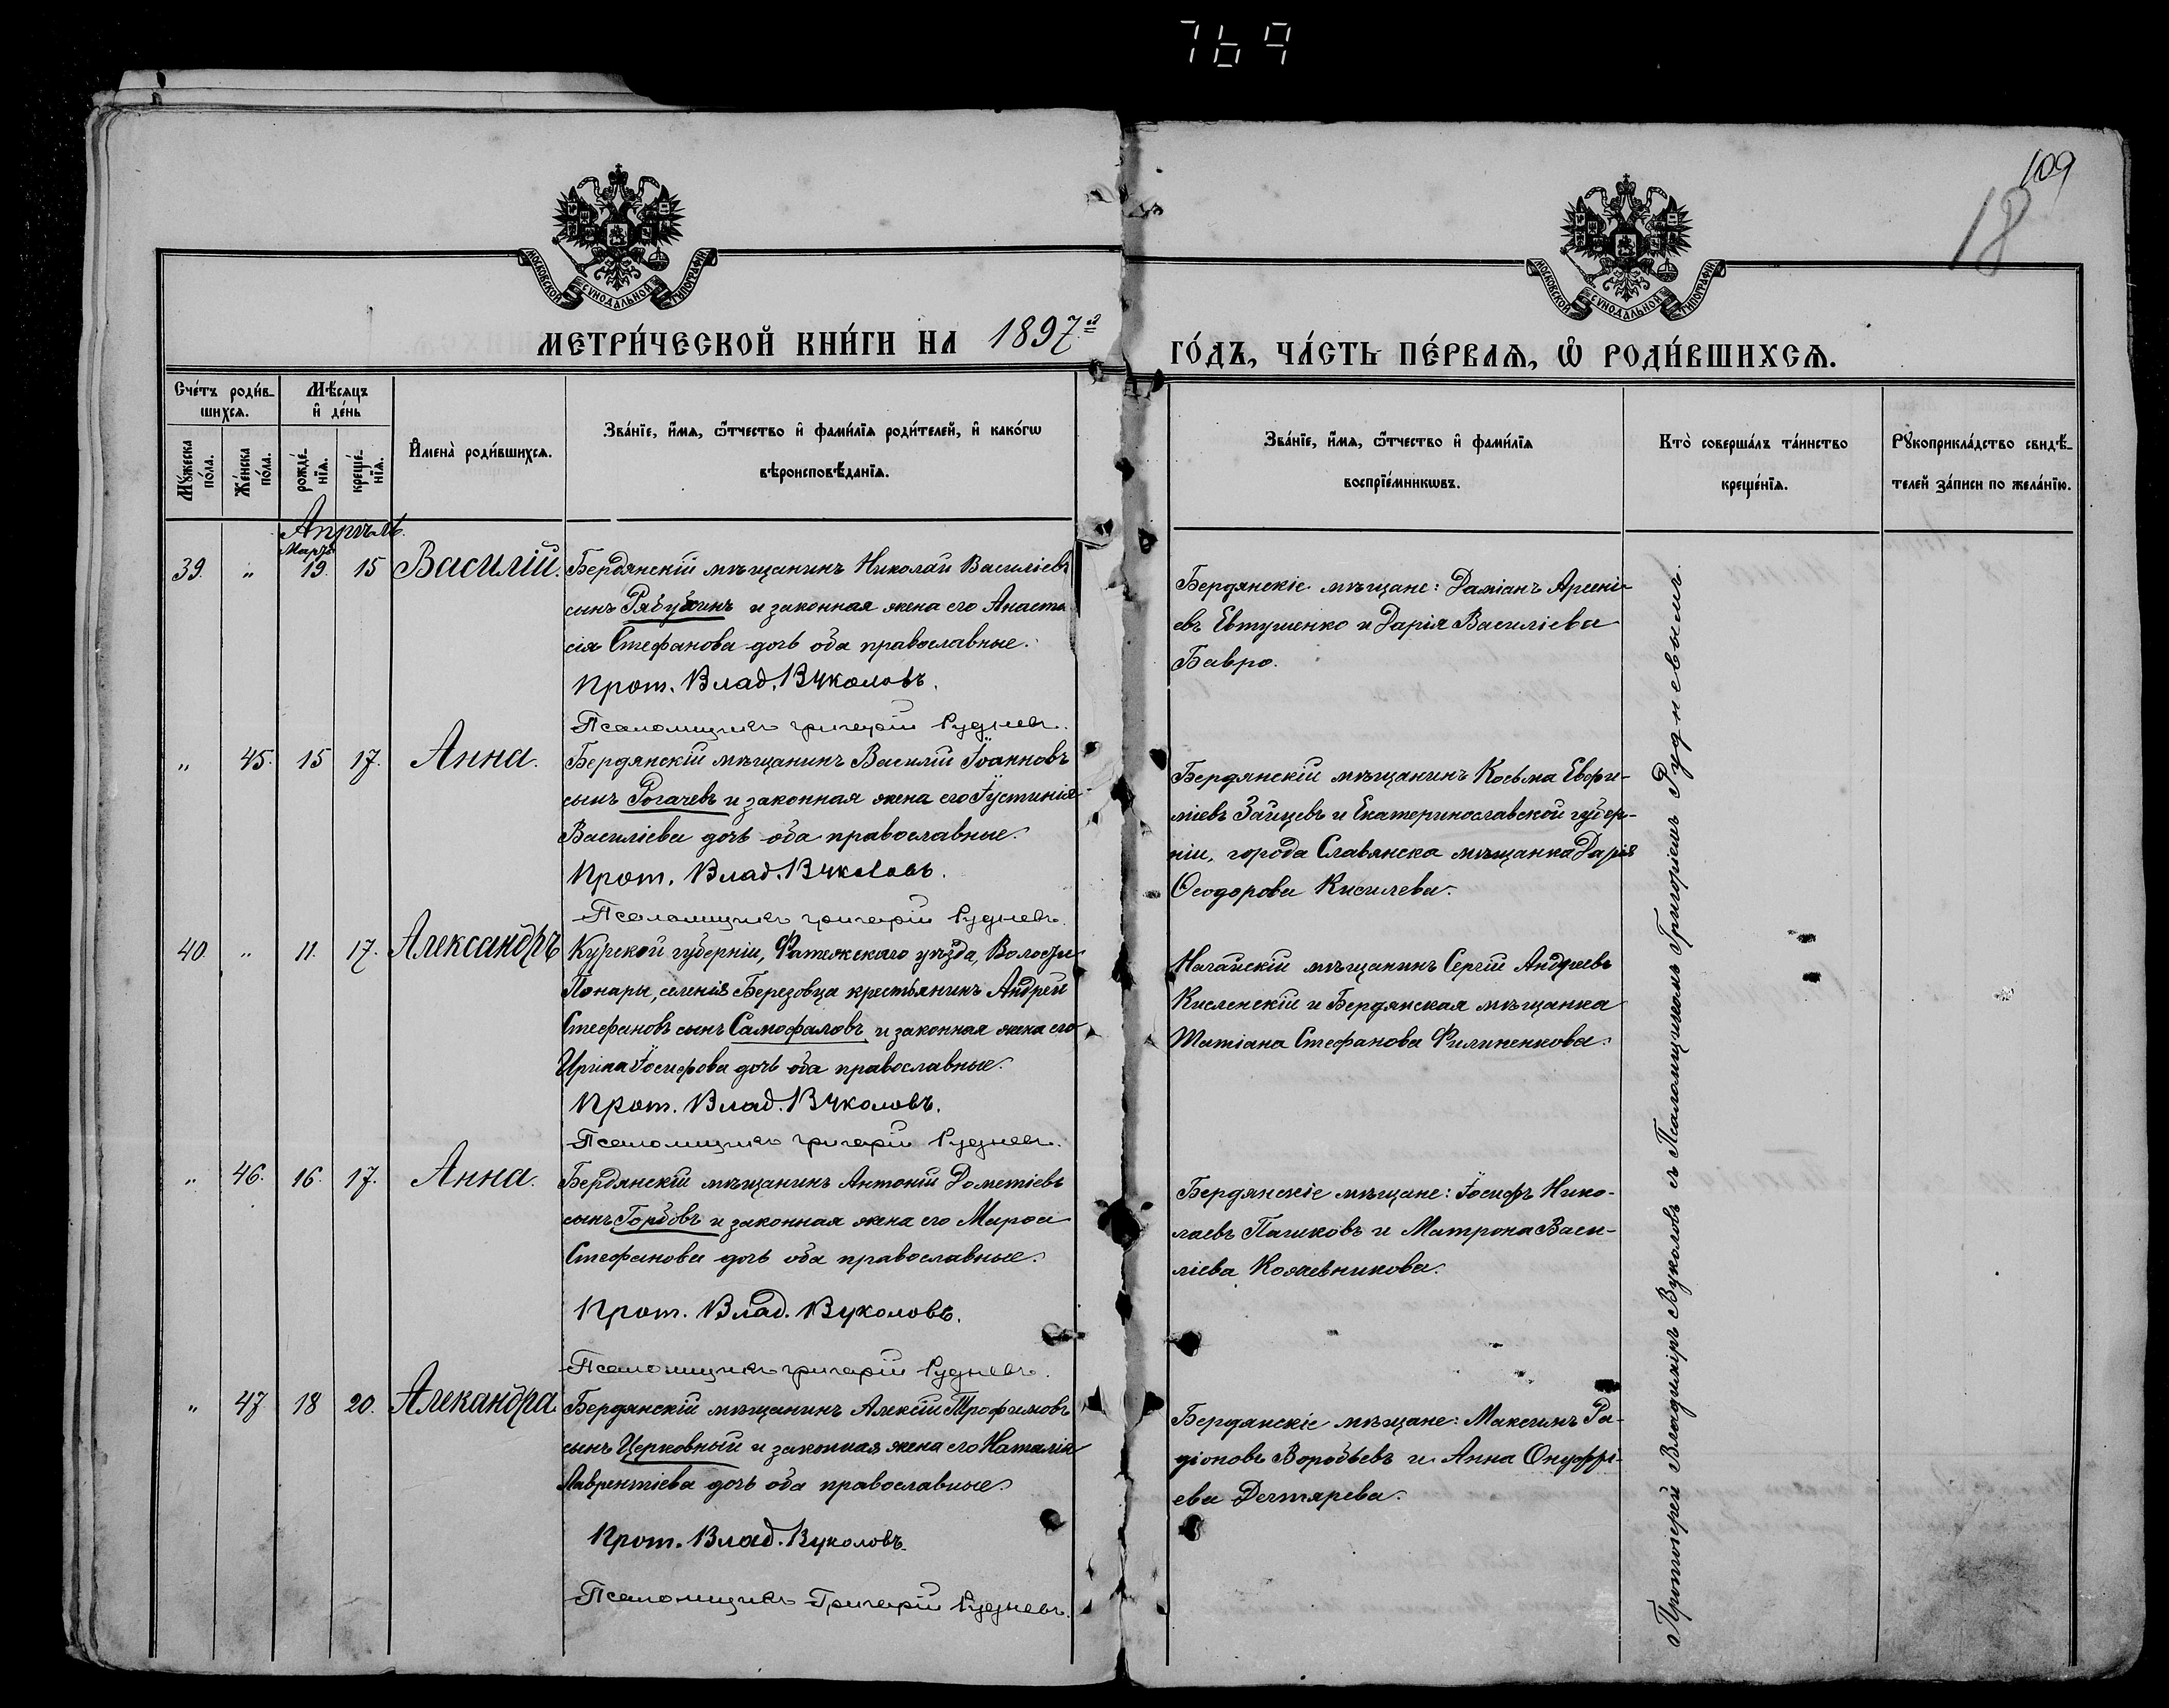 769
109
18
МОСКОВСКОЙ СѴНОДАЛЬНОЙ ТИПОГРАФІИ
МОСКОВСКОЙ СѴНОДАЛЬНОЙ ТИПОГРАФІИ
МЕТРИ́ЧЕСКОЙ КНИ́ГИ НА 1897й
ГО́ДЪ, ЧА́СТЬ ПЕ́РВАѦ, Ѡ РОДИ́ВШИХСѦ.
Сче́тъ роди́в-
шихсѧ.
Мꙋ́жеска по́ла.
Же́нска по́ла.
Мѣ́сѧцъ и҆ де́нь
рожде́-
нїѧ.
креще́-
нїѧ.
И҆мена̀ роди́вшихсѧ.
Зва́нїе, и҆́мѧ, ѻ҆́тчество и҆ фами́лїѧ роди́телей, и҆ како́гѡ
вѣроисповѣ́данїѧ.
Зва́нїе, и҆́мѧ, ѻ҆́тчество и҆ фами́лїѧ
воспрїе́мникѡвъ.
Кто̀ соверша́лъ та́инство
креще́нїѧ.
Рꙋкоприкла́дство свидѣ́-
телей за́писи по жела́нїю.
Апрѣль.
Мартъ
39. " 19. 15 Василій.
Бердянскій мѣщанинъ Николай Василіевъ
сынъ Рябухинъ и законная жена его Анаста
сія Стефанова дочь оба православные.
Прот. Влад. Вуколовъ.
Псаломщикъ Григорій Рудневъ.
Бердянскіе мѣщане: Даміанъ Арсені-
евъ Евтушенко и Дарія Василіева
Бавро.
" 45. 15 17. Анна.
Бердянскій мѣщанинъ Василій Іоанновъ
сынъ Рогачевъ и законная жена его Іустинія
Василіева дочь оба православные.
Прот. Влад. Вуколовъ.
Псаломщикъ Григорій Рудневъ.
Бердянскій мѣщанинъ Косьма Евфи-
міевъ Зайцевъ и Екатеринославской губер-
ніи, города Славянска мѣщанка Дарія
Ѳеодорова Кисилева.
40. " 11. 17. Александръ
Курской губерніи, Фатежскаго уѣзда, Волости
Понары, селенія Березовца крестьянинъ Андрей
Стефановъ сынъ Самофаловъ и законная жена его
Ирина Іосифова дочь оба православные.
Прот. Влад. Вуколовъ.
Псаломщикъ Григорій Рудневъ.
Ногайскій мѣщанинъ Сергій Андреевъ
Кисленскій и Бердянская мѣщанка
Татіана Стефанова Филипенкова.
" 46. 16. 17. Анна.
Бердянскій мѣщанинъ Антоній Дометіевъ
сынъ Горбовъ и законная жена его Марѳа
Стефанова дочь оба православные.
Прот. Влад. Вуколовъ.
Псаломщикъ Григорій Рудневъ.
Бердянскіе мѣщане: Іосифъ Нико-
лаевъ Пашковъ и Матрона Васи-
ліева Кожевникова.
" 47 18 20. Алекандра
Бердянскій мѣщанинъ Алексій Трофимовъ
сынъ Церковный и законная жена его Наталія
Лаврентіева дочь оба православные.
Прот. Влад. Вуколовъ.
Псаломщикъ Григорій Рудневъ.
Бердянскіе мѣщане: Максимъ Ра-
діоновъ Воробьевъ и Анна Онуфрі-
ева Дегтярева.
Протоіерей Владиміръ Вуколовъ съ Псаломщикомъ Григоріемъ Рудневымъ.